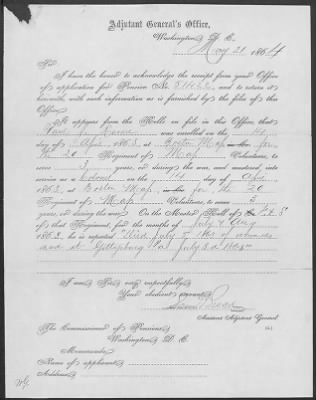 Adjutant General's Office,
Washington, D. C.
May 21 1864
Sir:
I have the honor to acknowledge the receipt from your Office
of application for Pension No. and to return it
herewith, with such information as is furnished by the files of this
Office.
It appears from the Rolls on file in this Office, that
Paul J. Revere was enrolled on the 14
day of Apr, 1863, at Boston Mass for
the 20 Regiment of Mass Volunteers, to
serve 3 years, or during the war, and mustered into
service as a Colonel on the 14 day of Apr
1863, at Boston Mass for the 20
Regiment of Mass Volunteers, to serve 3
years, or during the war. On the Muster Roll of F & S
of that Regiment, for the months of July & Aug
1863, he is reported "Died July 5 1863 of wounds
recd at Gettysburg Pa July 3d 1863"
I am, Sir, very respectfully,
Your obedient servant,
Assistant Adjutant General
The Commissioner of Pensions,
Washington, D. C.
Memoranda:
Name of applicant,
Address,